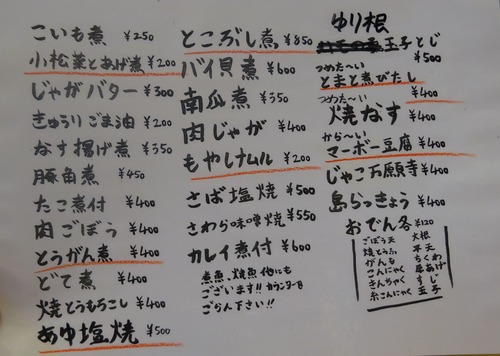 こいも煮 ¥250
小松菜とあげ煮 ¥200
じゃがバター ¥300
きゅうりごま油 ¥200
なす揚げ煮 ¥350
豚角煮 ¥450
たこ煮付 ¥400
肉ごぼう ¥400
とうがん煮 ¥400
どて煮 ¥400
焼とうもろこし ¥400
あゆ塩焼 ¥500
とこぶし煮 ¥850
バイ貝煮 ¥600
南瓜煮 ¥350
肉じゃが ¥400
もやしナムル ¥200
さば塩焼 ¥500
さわら味噌焼 ¥550
カレイ煮付 ¥600
煮魚、焼魚他にも
ございます!!カウンターを
ごらん下さい!!
ゆり根
玉子とじ
¥500
つめた〜い
とまと煮びたし
¥400
つめた〜い
焼なす ¥400
から〜い
マーボー豆腐 ¥400
じゃこ万願寺 ¥400
島らっきょう ¥400
おでん各 ¥120
ごぼう天 大根
焼とうふ 平天
がんも ちくわ
こんにゃく 厚あげ
きんちゃく すじ
糸こんにゃく 玉子